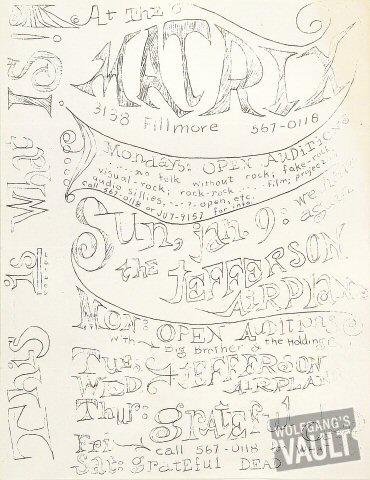 This is what IS!!
At the
MATRIX
3138 Fillmore 567-0118
Mondays: OPEN AUDITIONS
no talk without rock; fake-rock
visual-rock; rock-rock film; project
audio sillies, open, etc.
call 567-0118 or JU7-9157 for info
Sun, jan 9: we have again
the JEFFERSON
AIRPLANE
Mon: OPEN AUDITIONS
with Big Brother & the Holding
Tues WED JEFFERSON
AIRPLANE
Thur: grateful
Fri call 567-0118
Sat: grateful DEAD
WOLFGANG'S
VAULT